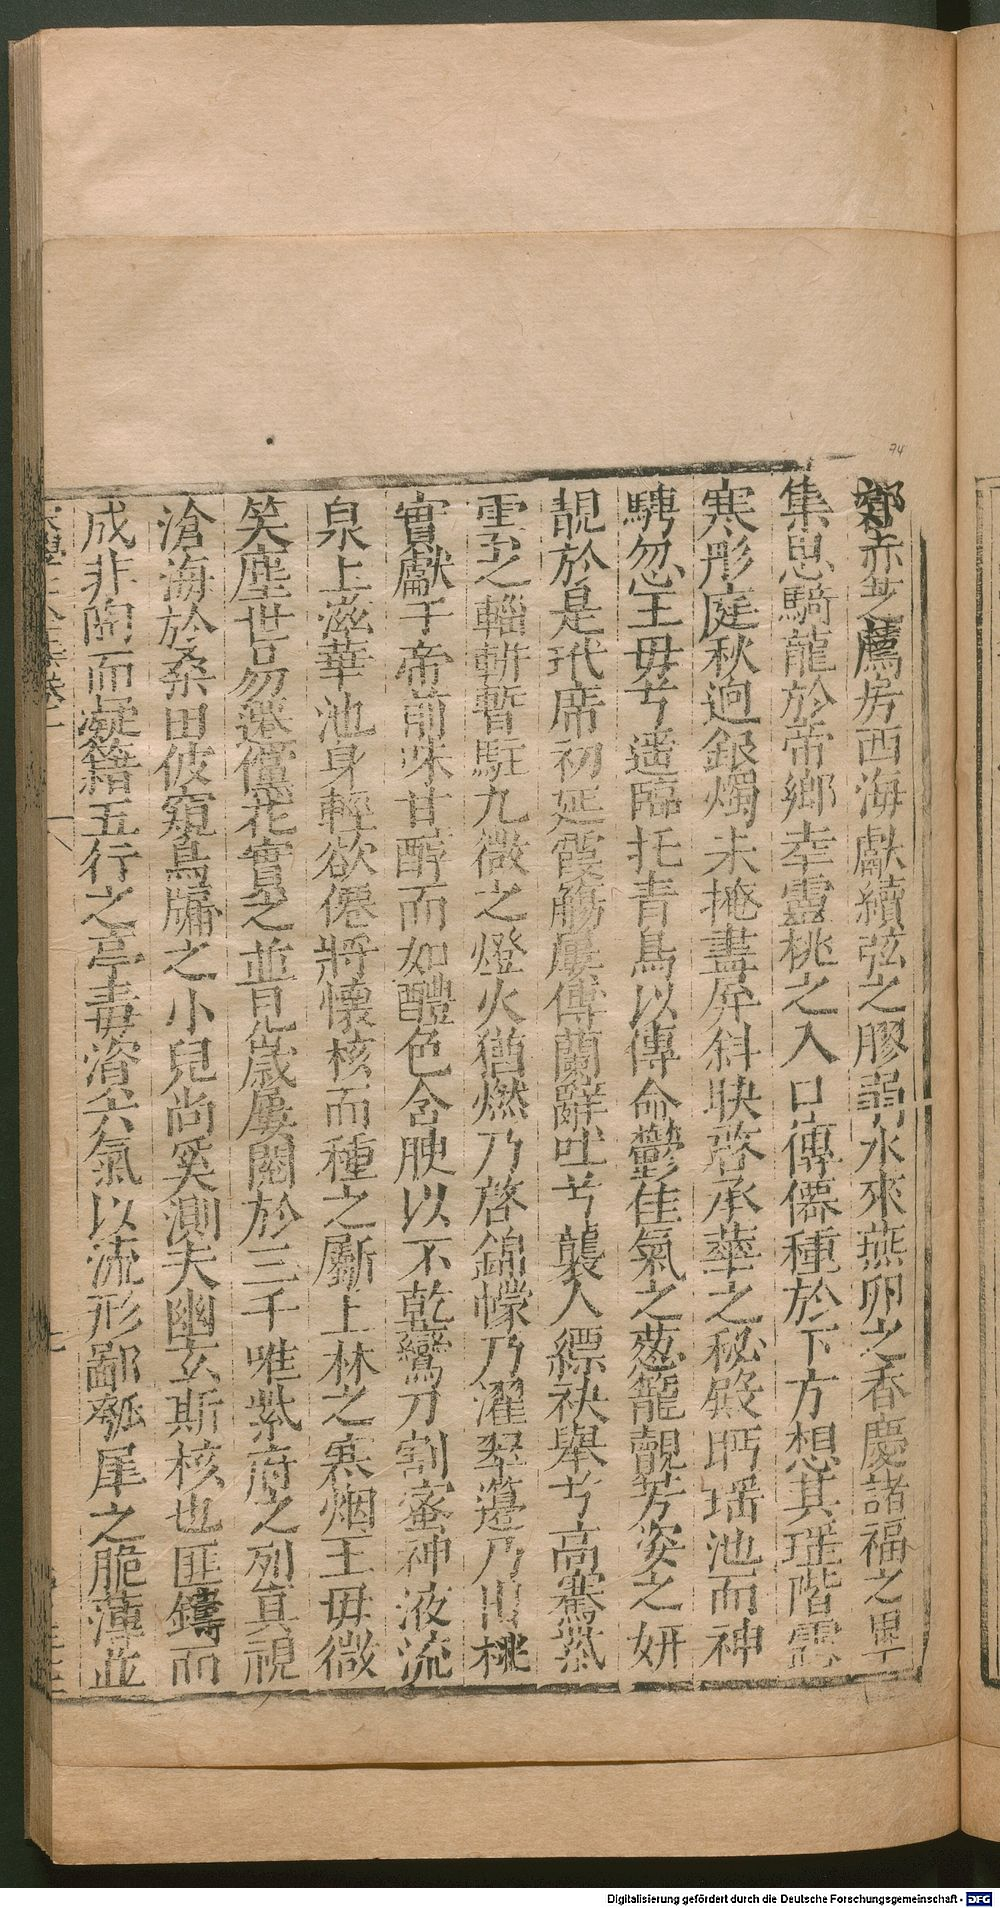 74
鄰赤莖之薦房西海獻續弦之膠弱水來燕卵之香慶諸福之畢
集思騎龍於帝鄉幸靈桃之入口傳僊種於下方想其瑶階露
寒彤庭秋迥銀燭未掩畫屏斜映啓承華之秘殿眄瑶池而神
騁忽王毋兮遥臨托青鳥以傳命鬱佳氣之葱籠覿芳姿之妍
靚於是玳席初延霞觴屢傳蘭辭吐兮襲人縹袂舉兮高騫紫
雲之輜軿暫駐九微之燈火猶燃乃啓錦幪乃濯翠籩乃出桃
實獻于帝前味甘酹而如醴色含腴以不乾鸞刀割蜜神液流
泉上滋華池身輕欲僊將懷核而種之斸上林之寒烟王毋微
笑塵世忽遷僊花實之並見歲屢閱於三千唯紫府之列真視
滄海於桑田彼窺鳥牖之小兒尚奚測夫幽玄斯核也匪鑄而
成非陶而凝籍五行之亭毒渻六氣以流形鄙瓠犀之脆薄並
宋學士全集卷一
Digitalisierung gefördert durch die Deutsche Forschungsgemeinschaft - DFG